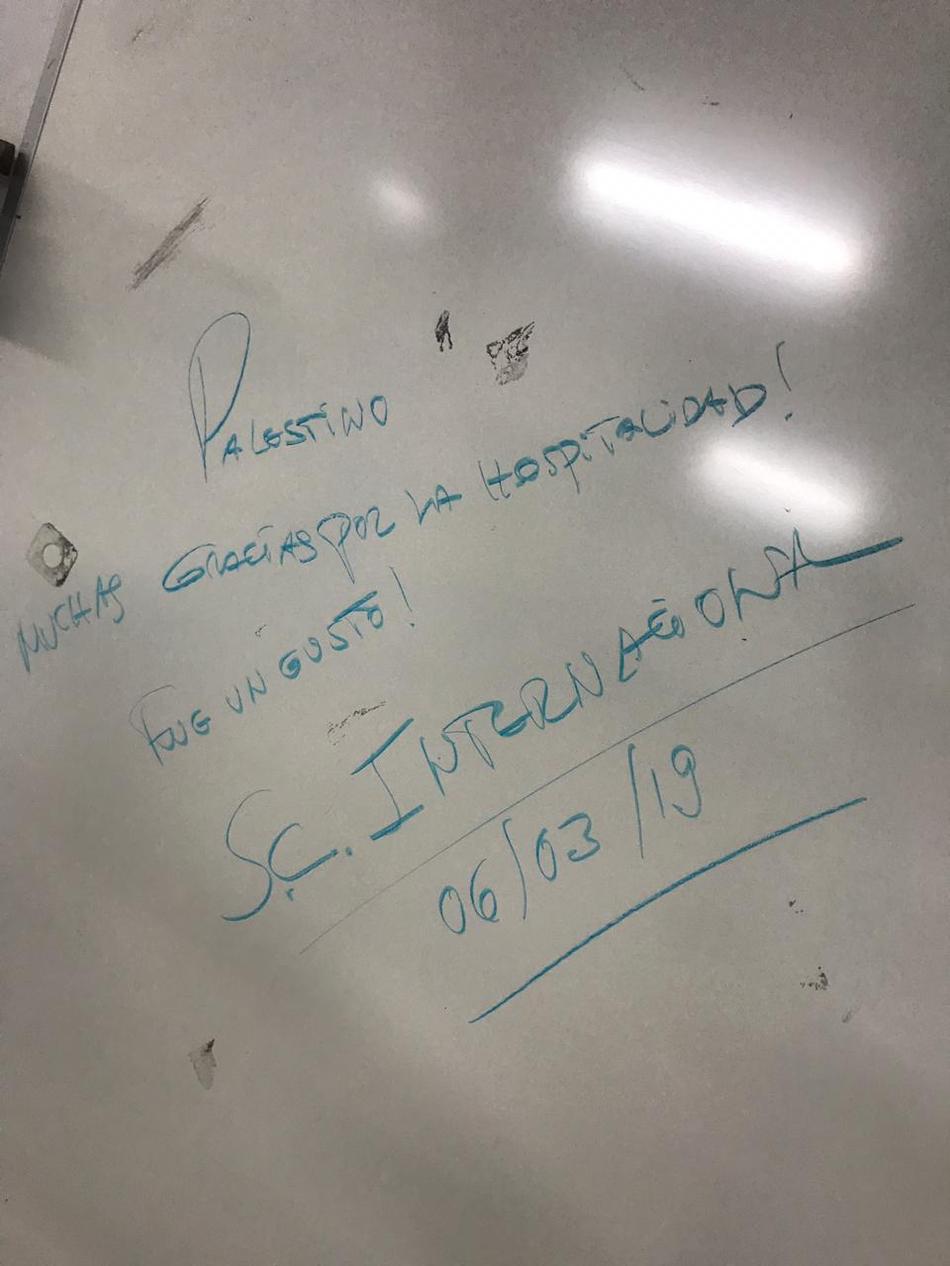 PALESTINO
MUCHAS GRACIAS POR LA HOSPITALIDAD!
FUE UN GUSTO!
S.C. INTERNACIONAL
06/03/19